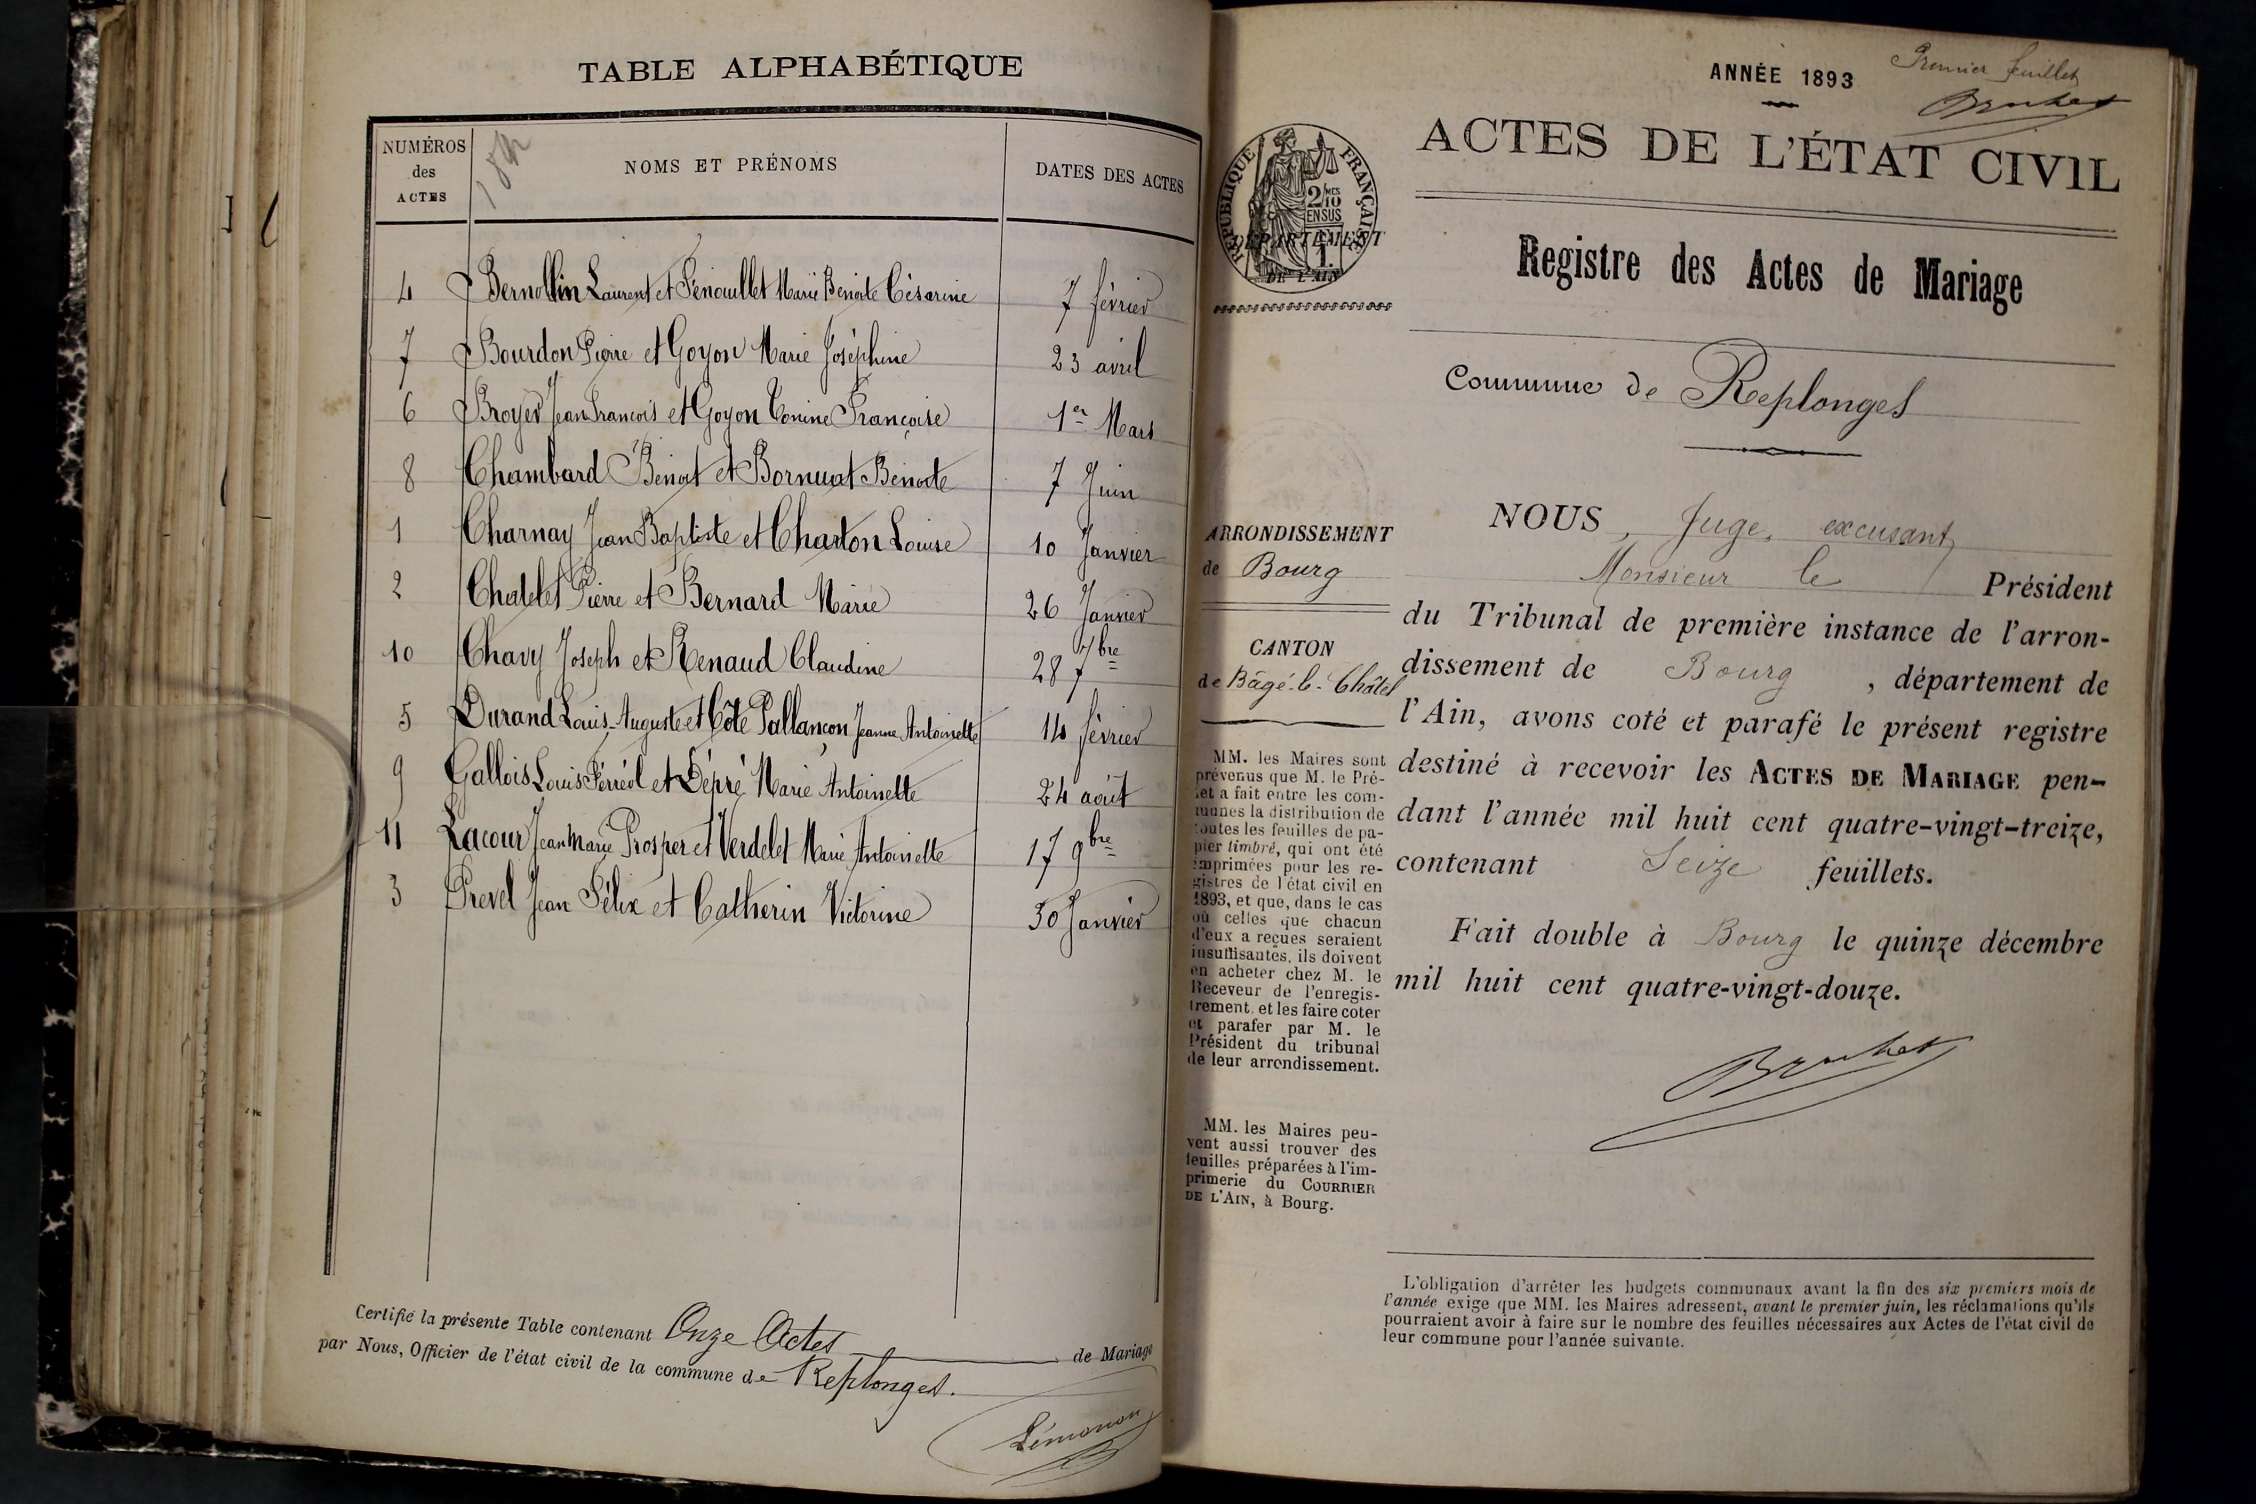 TABLE ALPHABÉTIQUE
NUMÉROS des ACTES
NOMS ET PRÉNOMS
DATES DES ACTES
4 Bernollin Laurent et Fenouillet Marie Benoite Césarine 7 février
7 Bourdon Pierre et Goyon Marie Joséphine 23 avril
6 Broyer Jean François et Goyon Tonine Françoise 1er Mars
8 Chambard Benoit et Bornuat Benoite 7 Juin
1 Charnay Jean Baptiste et Charton Louise 10 Janvier
2 Chatelet Pierre et Bernard Marie 26 Janvier
10 Chavy Joseph et Renaud Claudine 28 7bre
5 Durand Louis-Auguste et Côte Pallançon Jeanne Antoinette 14 février
9 Gallois Louis Ferréol et Dépré Marie Antoinette 24 août
11 Lacour Jean Marie Prosper et Verdelet Marie Antoinette 17 9bre
3 Prevel Jean Félix et Catherin Victorine 30 Janvier
Certifié la présente Table contenant Onze Actes de Mariage
par Nous, Officier de l'état civil de la commune de Replonges.
Lémonon
ANNÉE 1893
Premier feuillet
Brochet
ACTES DE L'ÉTAT CIVIL
RÉPUBLIQUE FRANÇAISE
2/10 MES
EN SUS
1
DÉPARTEMENT
DE L'AIN
Registre des Actes de Mariage
Commune de Replonges
ARRONDISSEMENT
de Bourg
CANTON
de Bâgé-le-Châtel
MM. les Maires sont
prévenus que M. le Pré-
fet a fait entre les com-
munes la distribution de
toutes les feuilles de pa-
pier timbré, qui ont été
imprimées pour les re-
gistres de l'état civil en
1893, et que, dans le cas
où celles que chacun
d'eux a reçues seraient
insuffisantes, ils doivent
en acheter chez M. le
Receveur de l'enregis-
trement, et les faire coter
et parafer par M. le
Président du tribunal
de leur arrondissement.
MM. les Maires peu-
vent aussi trouver des
feuilles préparées à l'im-
primerie du COURRIER
DE L'AIN, à Bourg.
NOUS, Juge, excusant
Monsieur le Président
du Tribunal de première instance de l'arron-
dissement de Bourg, département de
l'Ain, avons coté et parafé le présent registre
destiné à recevoir les ACTES DE MARIAGE pen-
dant l'année mil huit cent quatre-vingt-treize,
contenant Seize feuillets.
Fait double à Bourg le quinze décembre
mil huit cent quatre-vingt-douze.
Brochet
L'obligation d'arrêter les budgets communaux avant la fin des six premiers mois de
l'année exige que MM. les Maires adressent, avant le premier juin, les réclamations qu'ils
pourraient avoir à faire sur le nombre des feuilles nécessaires aux Actes de l'état civil de
leur commune pour l'année suivante.